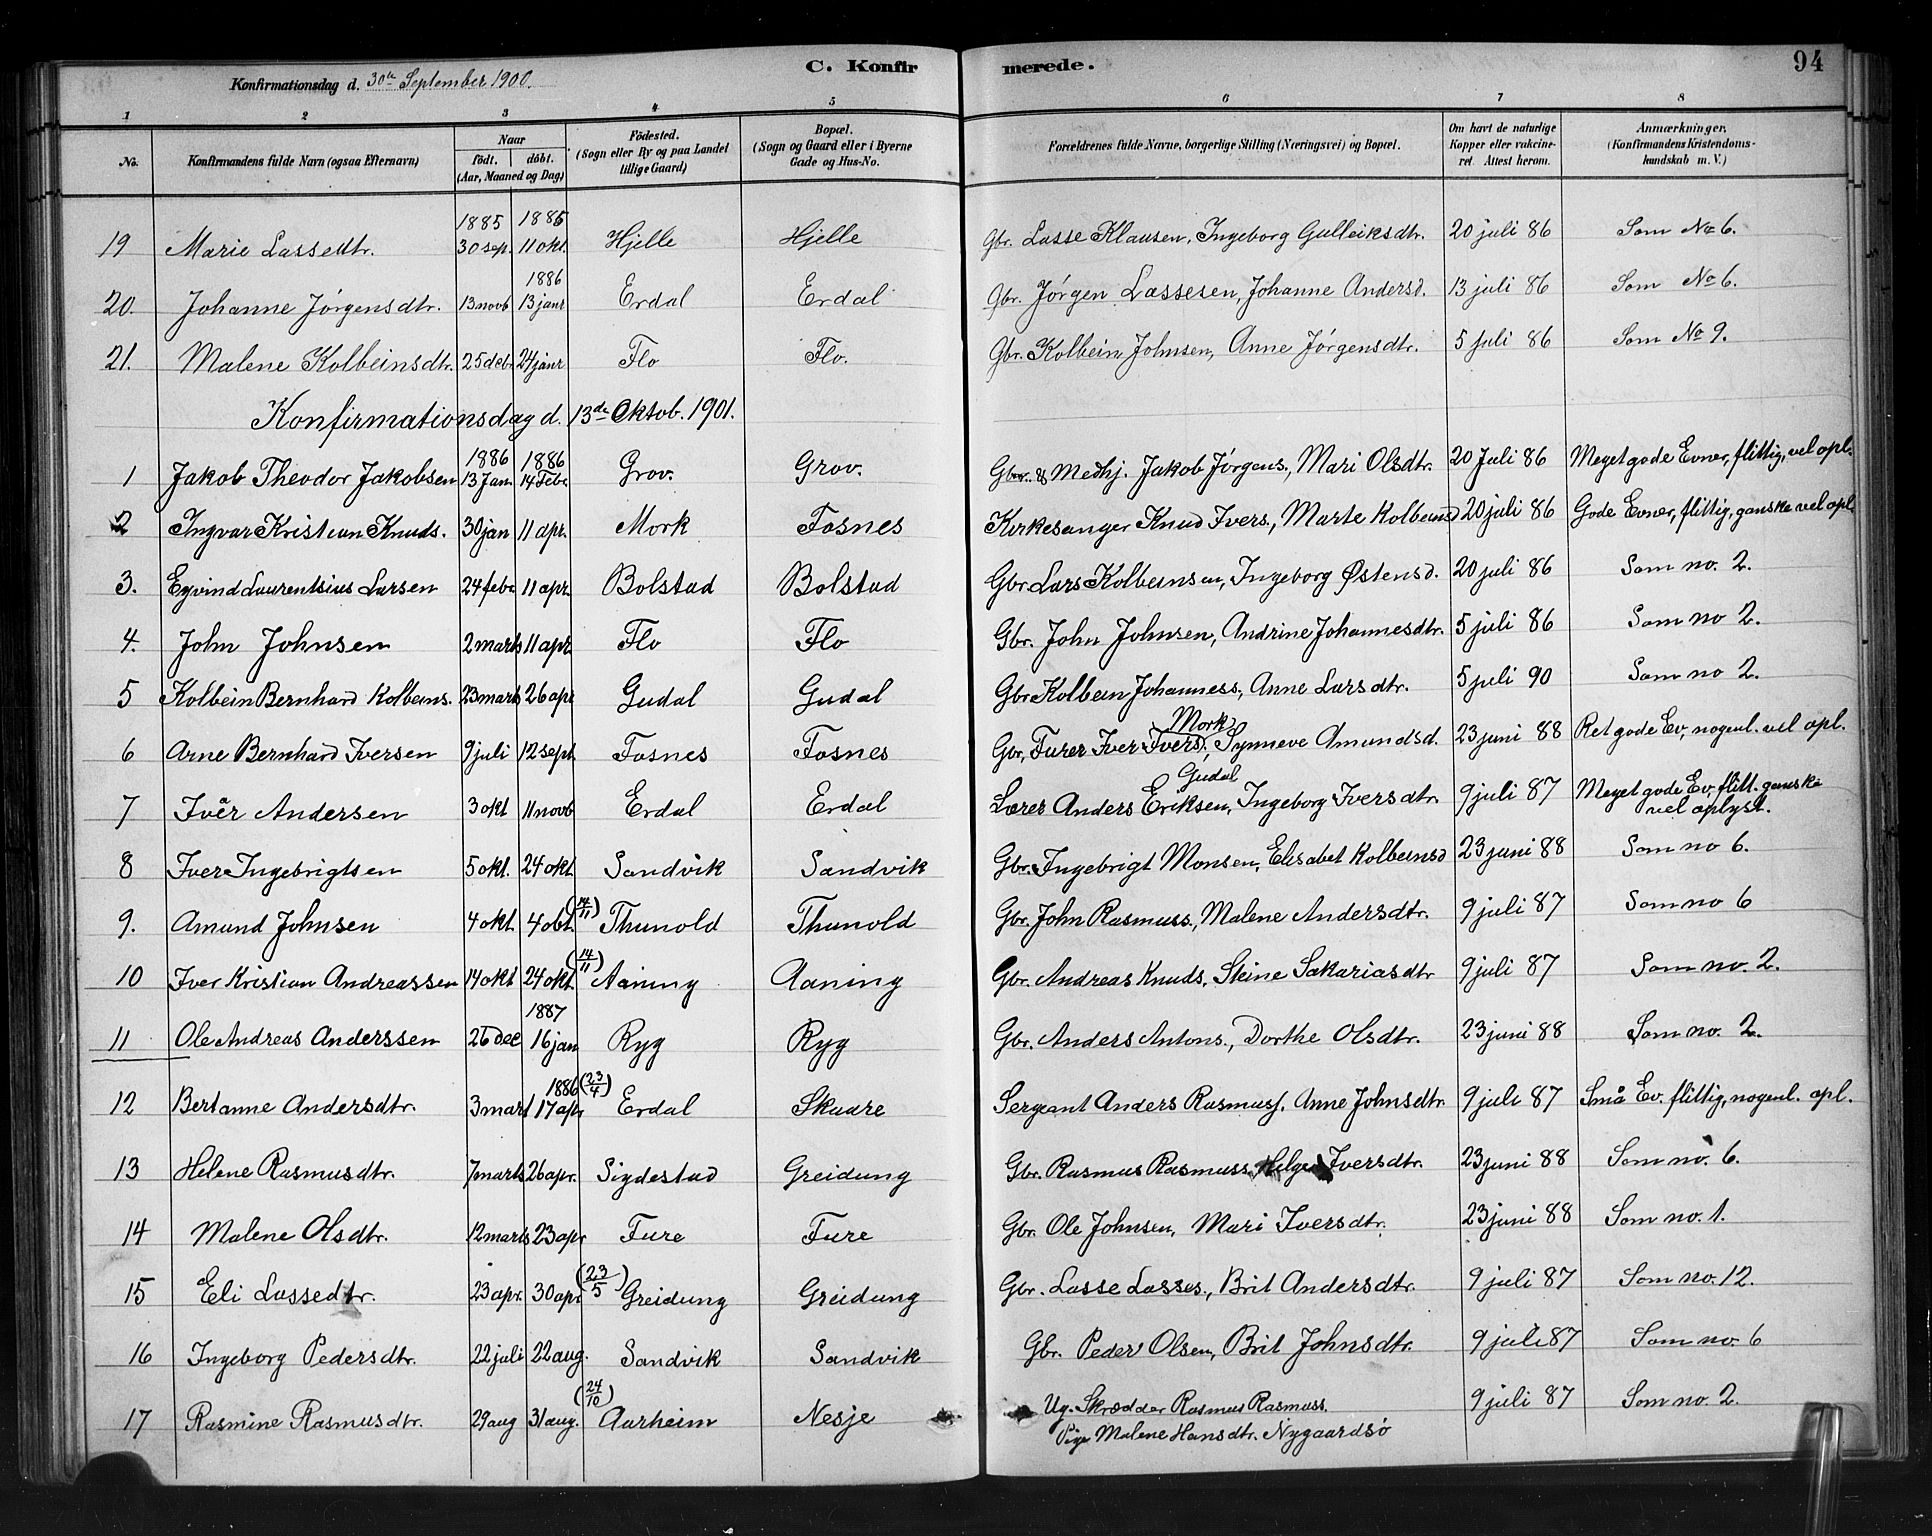 C. Konfirmerede. 94
Konfirmationsdag d. 30te September 1900.
1 2 3 4 5 6 7 8
No. Konfirmandens fulde Navn (ogsaa Efternavn) Naar født. døbt. (Aar, Maaned og Dag) Fødested. (Sogn eller By og paa Landet tillige Gaard) Bopæl. (Sogn og Gaard eller i Byerne Gade og Hus-No. Forældrenes fulde Navne, borgerlige Stilling (Næringsvei) og Bopæl. Om havt de naturlige Kopper eller vakcineret. Attest herom. Anmærkninger. (Konfirmandens Kristendomskundskab m. V.)
1885 1885
19 Marie Lassedtr. 30 sep. 11 okt. Hjelle Hjelle Gbr. Lasse Klausen, Ingeborg Gulleiksdtr. 20 juli 86 Som No 6.
1886
20. Johanne Jørgensdtr. 13 novb 13 janr Erdal Erdal Gbr. Jørgen Lassesen, Johanne Andersd. 13 juli 86 Som No 6.
21. Malene Kolbeinsdtr. 25 debr 24 janr Flo Flo. Gbr. Kolbein Johnsen, Anne Jørgensdtr. 5 juli 86 Som No 9.
Konfirmationsdag d. 13de Oktob. 1901.
1886 1886
1 Jakob Theodor Jakobsen 13 Jan. 14 Febr Grov. Grov. Gbr. & Medhj. Jakob Jørgens., Mari Olsdtr. 20 Juli 86 Meget gode Evner, flittig, vel opl.
2 Ingvar Kristian Knuds. 30 jan 11 apr. Mork Fosnes Kirkesanger Knud Ivers., Marte Kolbeinsd 20 juli 86 Gode Evner, flittig, ganske vel opl.
3. Eyvind Laurentsius Larsen 24 febr 11 apr. Bolstad Bolstad Gbr. Lars Kolbeinsen, Ingeborg Østensd. 20 juli 86 Som no. 2.
4. John Johnsen 2 marts 11 apr. Flo Flo Gbr. John Johnsen, Andrine Johannesdtr. 5 juli 86 Som no 2.
5 Kolbein Bernhard Kolbeins. 23 marts 26 apr Gudal Gudal Gbr Kolbein Johanness, Anne Larsdtr. 5 juli 90 Som no 2.
Mork
6 Arne Bernhard Iversen 9 juli 12 sept. Fosnes Fosnes Gbr, Furer Iver Ivers. Synneve Amundsd. 23 juni 88 Ret gode Ev, nogenl. vel opl.
Gudal
7 Ivêr Andersen 3 okt 11 novb Erdal Erdal Lærer Anders Eriksen, Ingeborg Iversdtr. 9 juli 87 Meget gode Ev, flitt. ganske
vel oplyst.
8 Iver Ingebrigtsen 5 okt. 24 okt Sandvik Sandvik Gbr. Ingebrigt Monsen, Elisabet Kolbeinsd 23 juni 88 Som no 6.
9. Amund Johnsen 4 okt. 4 obt. (14/11) Thunold Thunold Gbr. John Rasmuss., Malene Andersdtr. 9 juli 87 Som no 6
10 Iver Kristian Andreassen 14 okt 24 okt. (14/11) Aaning Aaning Gbr. Andreas Knuds, Steine Sakariasdtr 9 juli 87 Som no. 2.
1887
11 Ole Andreas Anderssen 26 Dec 16 jan Ryg Ryg Gbr. Anders Antons., Dorthe Olsdtr. 23 juni 88 Som no. 2.
1886 (23/4)
12 Bertanne Andersdtr. 3 mart 17 apr Erdal Skaare Sergeant Anders Rasmuss. Anne Johnsdtr. 9 juli 87 Små Ev. flittig, nogenl. opl.
13 Helene Rasmusdtr. 7 marts 26 apr. Sigdestad Greidung Gbr. Rasmus Rasmuss. Helge Iversdtr. 23 juni 88 Som no. 6.
14 Malene Olsdtr. 12 marts 23 apr Fure Fure Gbr. Ole Johnsen, Mari Iversdtr. 23 juni 88 Som no. 1.
15 Eli Lassedtr. 23 apr. 30 apr (23/5) Greidung Greidung Gbr. Lasse Lasses., Brit Andersdtr. 9 juli 87 Som no. 12.
16 Ingeborg Pedersdtr. 22 juli 22 aug. Sandvik Sandvik Gbr. Peder Olsen, Brit Johnsdtr. 9 juli 87 Som no. 6
17 Rasmine Rasmusdtr. 29 aug 31 aug. (24/10) Aarheim Nesje Ug. Skrædder Rasmus Rasmuss. 9 juli 87 Som no. 2.
Pige Malene Hansdtr. Nygaardsø